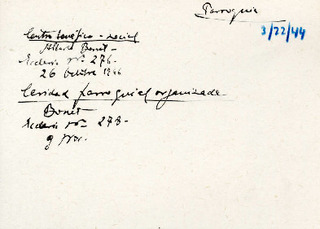 Parroquia
3/22/44
Centro benéfico-social
Albert Bonet -
Ecclesia nº 276 -
26 octubre 1946
Caridad parroquial organizada
Bonet
Ecclesia nº 278 -
9 nov.